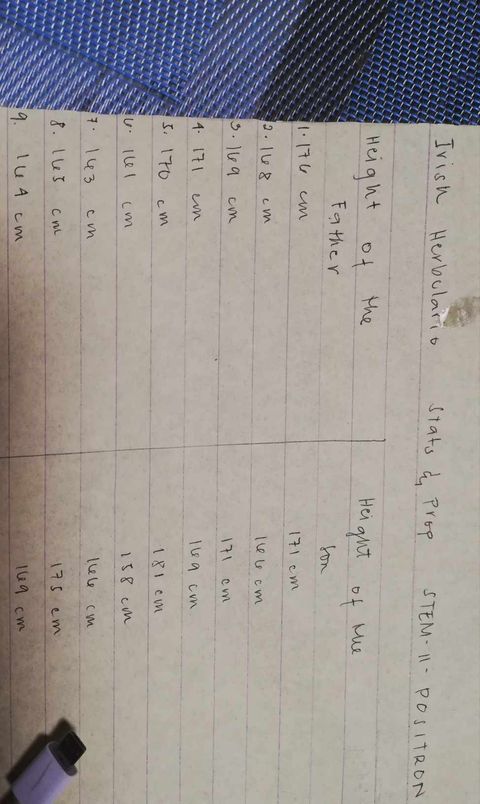 Irish Herbulario Stats & Prop STEM-11-POSITRON
Height of the Father Height of the Son
1. 176 cm 171 cm
2. 168 cm 166 cm
3. 169 cm 171 cm
4. 171 cm 169 cm
5. 170 cm 181 cm
6. 161 cm 158 cm
7. 163 cm 166 cm
8. 165 cm 175 cm
9. 164 cm 169 cm